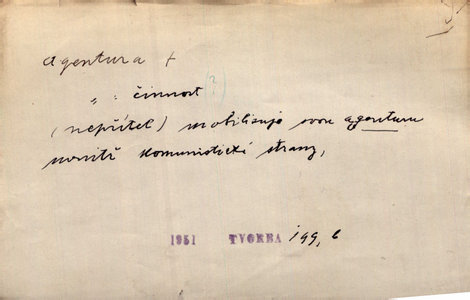 agentura +
„ : činnost (?)
(nepřítel) mobilisuje svou agenturu
uvnitř komunistické strany,
1951 TVORBA 199, 6